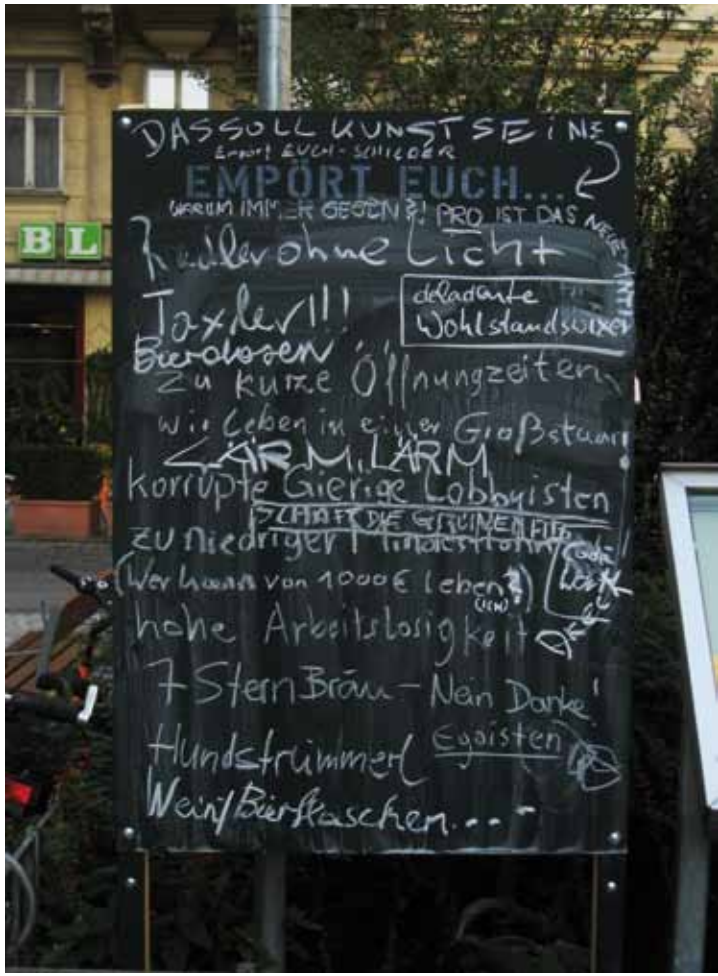 DAS SOLL KUNST SEIN?
Empört EUCH-SCHILDER
EMPÖRT EUCH...
WARUM IMMER GEGEN?! PRO IST DAS NEUE ANTI
Radler ohne Licht
BL
Taxler!!!
dekadente
Wohlstandswixer
Bierdosen
zu kurze Öffnungzeiten
wir leben in einer
LÄRM, LÄRM
korrupte Gierige Lobbyisten
DIE GRÜNEN
zu niedriger Mindestlohn
(Wer kann von 1000 € leben?)
(ICH)
hohe Arbeitslosigkeit
7 Stern Bräu - Nein Danke!
Egoisten
Hundstrümmerl
Wein/Bierflaschen....